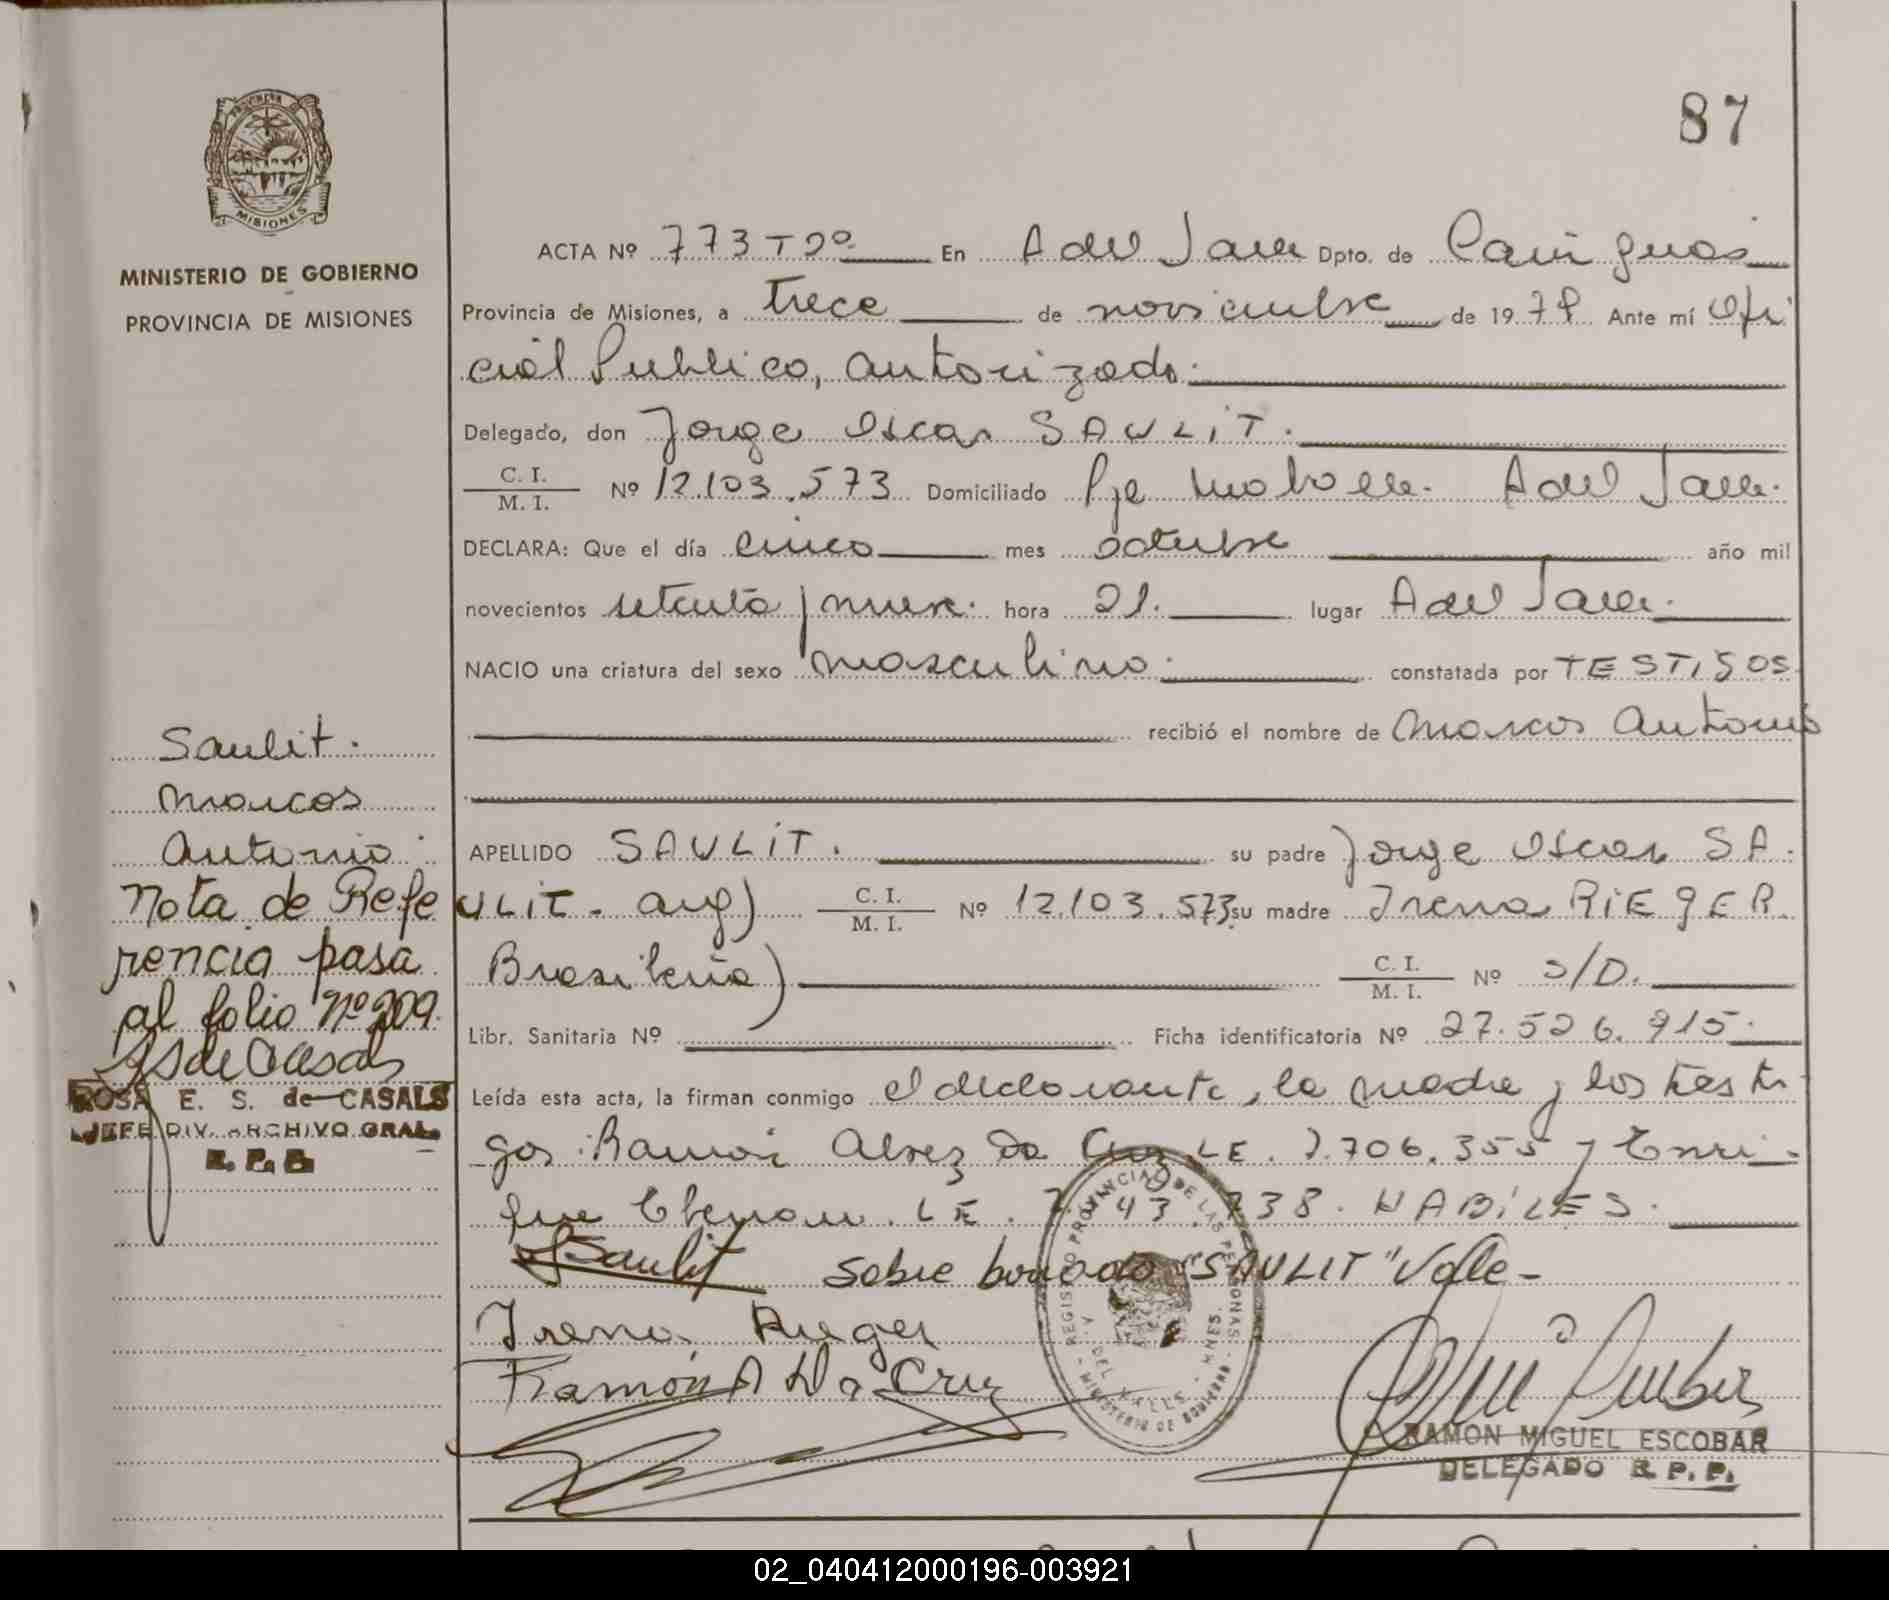 87
PROVINCIA DE
MISIONES
MINISTERIO DE GOBIERNO
PROVINCIA DE MISIONES
ACTA Nº 773 T 2º En A del Valle Dpto. de Cainguas
Provincia de Misiones, a trece de noviembre de 1979 Ante mí Ofi
cial Publico, autorizado.
Delegado, don Jorge Oscar SAULIT.
C. I.
M. I. Nº 12.103.573 Domiciliado Pje A del Valle.
DECLARA: Que el día cinco mes octubre año mil
novecientos setenta y nueve. hora 21. lugar A del Valle.
NACIO una criatura del sexo masculino. constatada por TESTIGOS
recibió el nombre de Marcos Antonio
Saulit.
Marcos
Antonio
Nota de Refe
rencia pasa
al folio Nº 209.
ROSA E. S. de CASALS
JEFE DIV. ARCHIVO GRAL.
R. P. P.
APELLIDO SAULIT. su padre Jorge Oscar SA
ULIT - arg) C. I.
M. I. Nº 12.103.573 su madre Irena RIEGER
Brasileña) C. I.
M. I. Nº S/D.
Libr. Sanitaria Nº Ficha identificatoria Nº 27.526.915.
Leída esta acta, la firman conmigo el declarante, la madre y los testi
gos: Ramón Alvez Da Cruz LE. 7.706.355 y Enri
que LE. 43 738. HABILES.
Saulit Sobre borrado "SAULIT" Vale-
Irena Rieger
Ramón A Da Cruz
REGISTRO PROVINCIAL DE LAS PERSONAS
A. DEL VALLE - MNES.
MINISTERIO DE GOBIERNO
RAMON MIGUEL ESCOBAR
DELEGADO R. P. P.
02_040412000196-003921